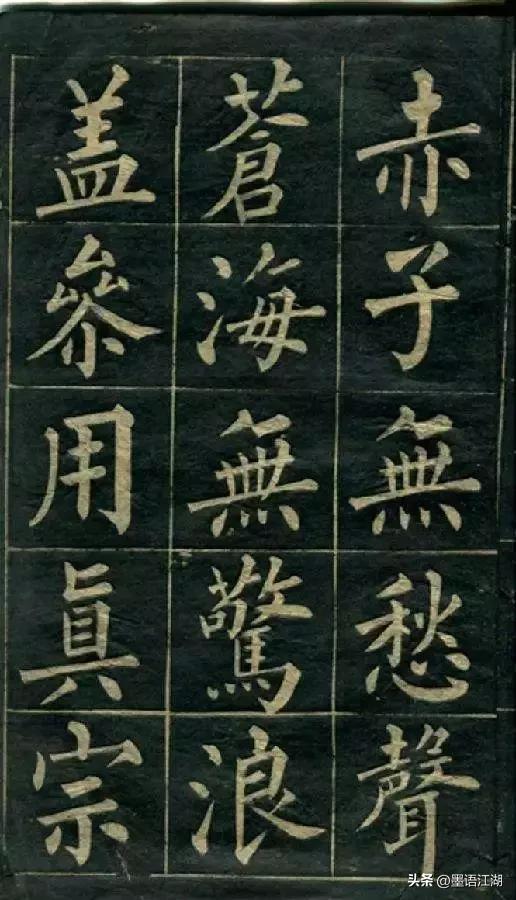 赤子無愁聲
蒼海無驚浪
盖叅用眞宗
头条 @墨语江湖